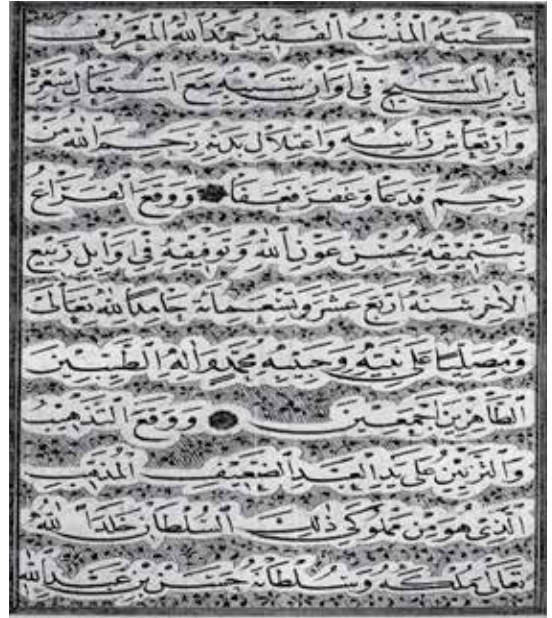 كتبه المذنب الفقير حمد الله المعروف
بابن الشيخ في اوان شيبه مع اشتعال شعر
وارتعاش راسه واعتلال بدنه رحم الله من
رحم فدعا وغفر فعفا ووقع الفراغ
بتنميقه بحسن عون الله وتوفيقه في اوايل ربيع
الاخر سنة اربع عشر وتسعمائة حامدا لله تعالى
ومصليا على نبيه وحبيبه محمد واله الطيبين
الطاهرين اجمعين ووقع التذهيب
والتزيين على يد العبد الضعيف المذنب
الذي هو من مملوكي ذلك السلطان خلد الله
تعالى ملكه وسلطانه حسن بن عبد الله